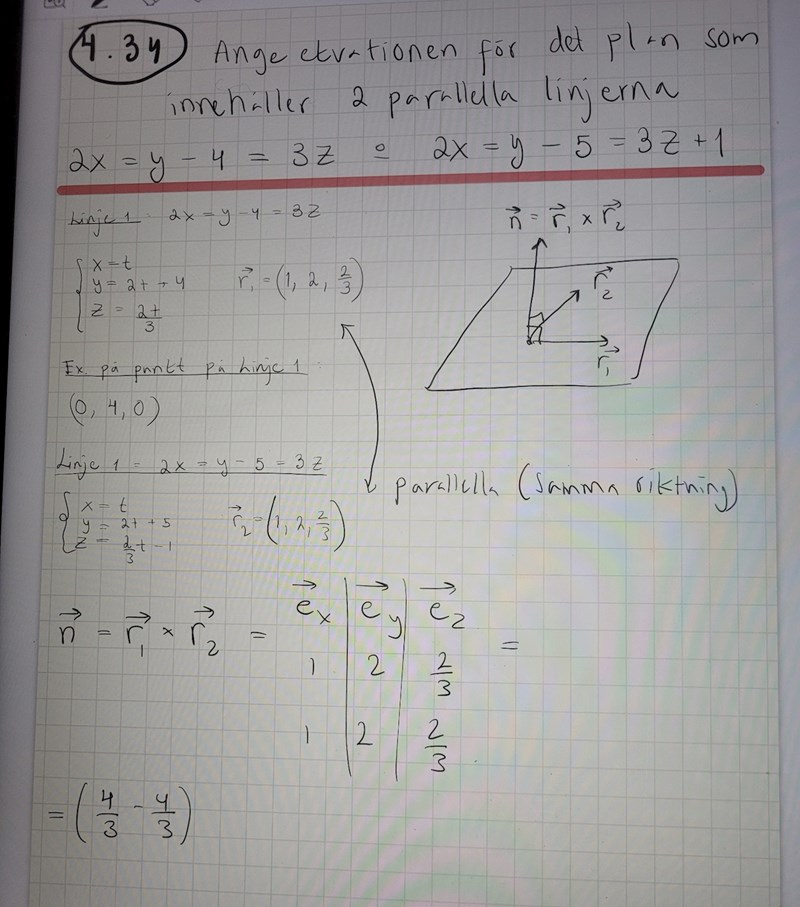 4.34 Ange ekvationen för det plan som
innehåller 2 parallella linjerna
2x = y - 4 = 3z o 2x = y - 5 = 3z + 1
Linje 1: 2x = y - 4 = 3z
x = t
y = 2t + 4
z = 2t/3
r⃗₁ = (1, 2, 2/3)
n⃗ = r⃗₁ × r⃗₂
r⃗₂
r⃗₁
Ex. på punkt på Linje 1
(0, 4, 0)
Linje 1 = 2x = y - 5 = 3z
x = t
y = 2t + 5
z = 2/3 t - 1
r⃗₂ = (1, 2, 2/3)
parallella (samma riktning)
n⃗ = r⃗₁ × r⃗₂ = | e⃗x | e⃗y | e⃗z =
1 | 2 | 2/3
1 | 2 | 2/3
= (4/3 - 4/3)